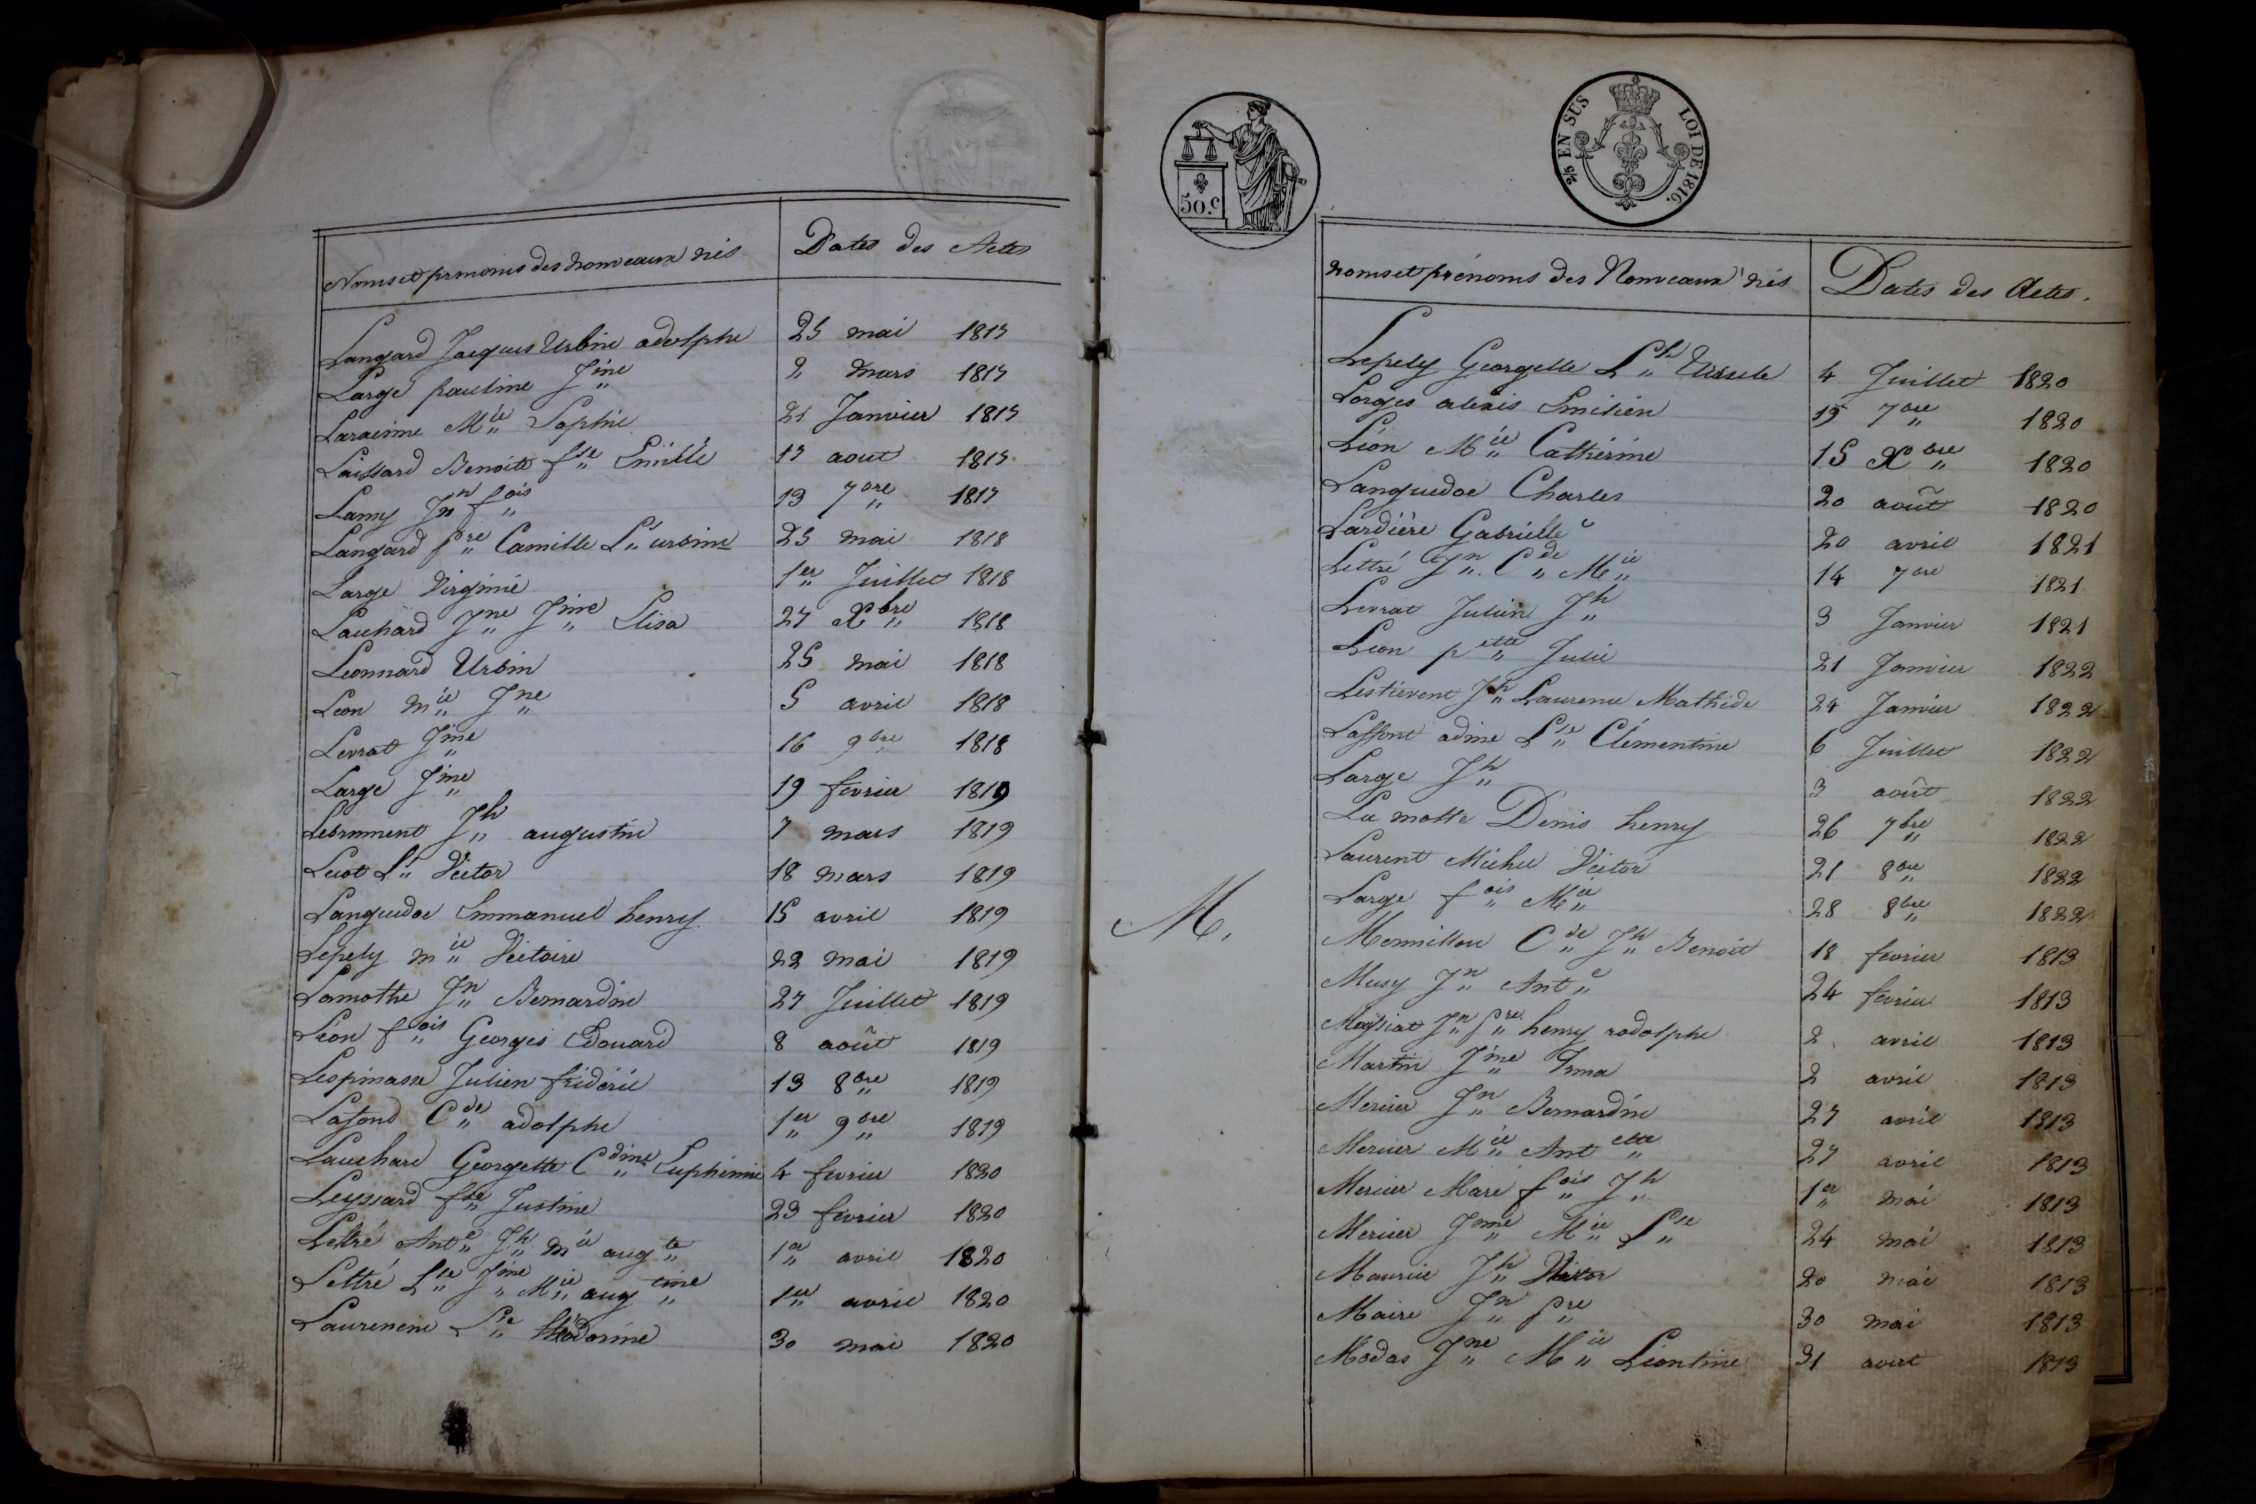 Noms et prenoms des nouveaux nés | Dates des Actes
Langard Jacques Urbin adolphe 25 mai 1817
Large pauline Jine 2 mars 1817
Laracine Mie Sophie 21 Janvier 1817
Laissard Benoite fse Emilie 17 aout 1817
Lamy Jn fois 13 7bre 1817
Langard pre Camille Ls urbine 25 mai 1818
Large Virginie 1er Juillet 1818
Lauchard Jne Jine Elisa 27 Xbre 1818
Leonnard Urbin 25 mai 1818
Leon mie Jne 5 avril 1818
Levrat Jme 16 9bre 1818
Large Jime 19 fevrier 1819
Lebrunment Jh augustin 7 mars 1819
Luot Ls Victor 18 mars 1819
Languedoc Emmanuel henry 15 avril 1819
Lepely mie Victoire 22 mai 1819
Lamothe Jn Bernardin 27 Juillet 1819
Léon fois Georges Edouard 8 août 1819
Lespinasse Julien fréderic 13 8bre 1819
Lafond Cde adolphe 1er 9bre 1819
Lauchard Georgette Cdine Euphémie 4 fevrier 1820
Leyssard fse Justine 23 fevrier 1820
Lettré Ante Jh mie augte 1er avril 1820
Lettré Lse Jine Mie augtine 1er avril 1820
Laurencin Lse théodorine 30 mai 1820
50.c
2/5 EN SUS LOI DE 1816.
Noms et prénoms des Nouveaux nés | Dates des Actes.
Lepely Georgette Lh Ursule 4 Juillet 1820
Lorges alexis Emilien 19 7bre 1820
Léon Mie Cathérine 15 Xbre 1820
Languedoc Charles 20 août 1820
Lardière Gabrielle 20 avril 1821
Lettré Jn. Cde Mie 14 7bre 1821
Levrat Julien Jh 3 Janvier 1821
Leon pette Julie 21 Janvier 1822
Lestievent Jh Laurence Mathide 24 Janvier 1822
Laffont adine Lse Clémentine 6 Juillet 1822
Large Jh 3 août 1822
La motte Denis henry 26 7bre 1822
Laurent Michel Victor 21 8bre 1822
Large fois Mie 28 8bre 1822
M.
Mermillon Cde Jh Benoit 18 fevrier 1813
Musy Jn Ante 24 fevrier 1813
Moissiat Jn pre henry rodolphe 2 avril 1813
Martin Jine Irma 2 avril 1813
Mercier Jn Bernardin 27 avril 1813
Mercier Mie Antette 27 avril 1813
Mercier Marc fois Jh 1er mai 1813
Mercier Jme Mie Lse 24 mai 1813
Maurice Jh Victor 20 mai 1813
Maire Jn pre 30 mai 1813
Modas Jne Mie Léontine 31 aout 1813